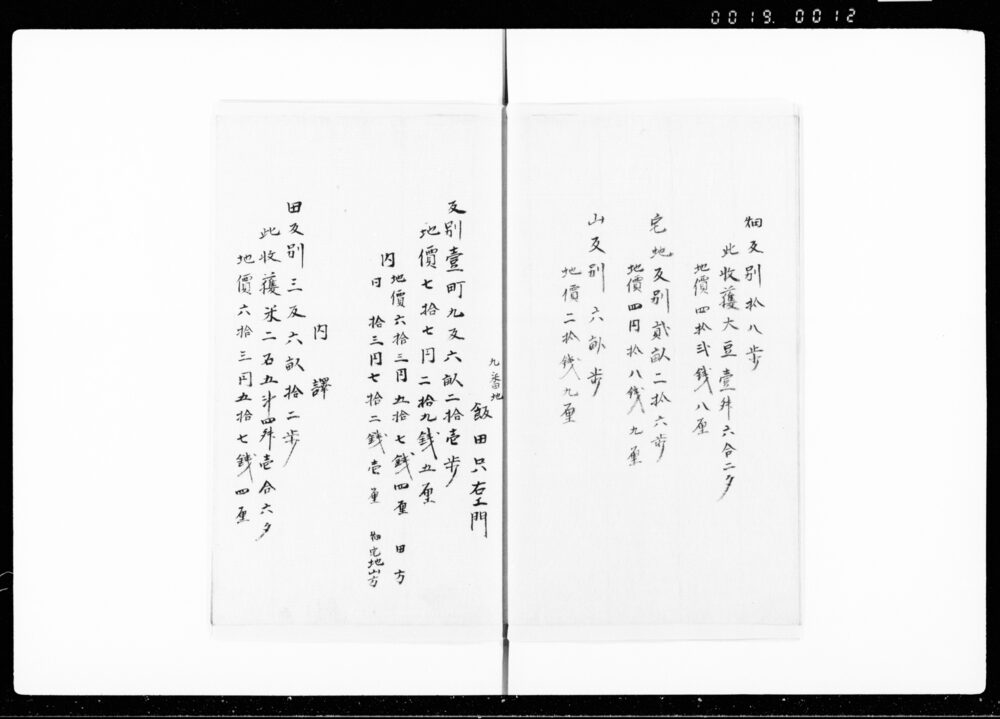 0019. 0012
畑反別拾八歩
此收穫大豆壹舛六合二夕
地價四拾弐銭八厘
宅地反別貳畝二拾六歩
地價四円拾八銭九厘
山反別六畝歩
地價二拾銭九厘
九番地
飯田只右エ門
反別壹町九反六畝二拾壱歩
地價七拾七円二拾九銭五厘
内
地價六拾三円五拾七銭四厘 田方
日 拾三円七拾二銭壱厘 畑宅地山方
内譯
田反別三反六畝拾二歩
此收穫米二石五斗四舛壱合六夕
地價六拾三円五拾七銭四厘